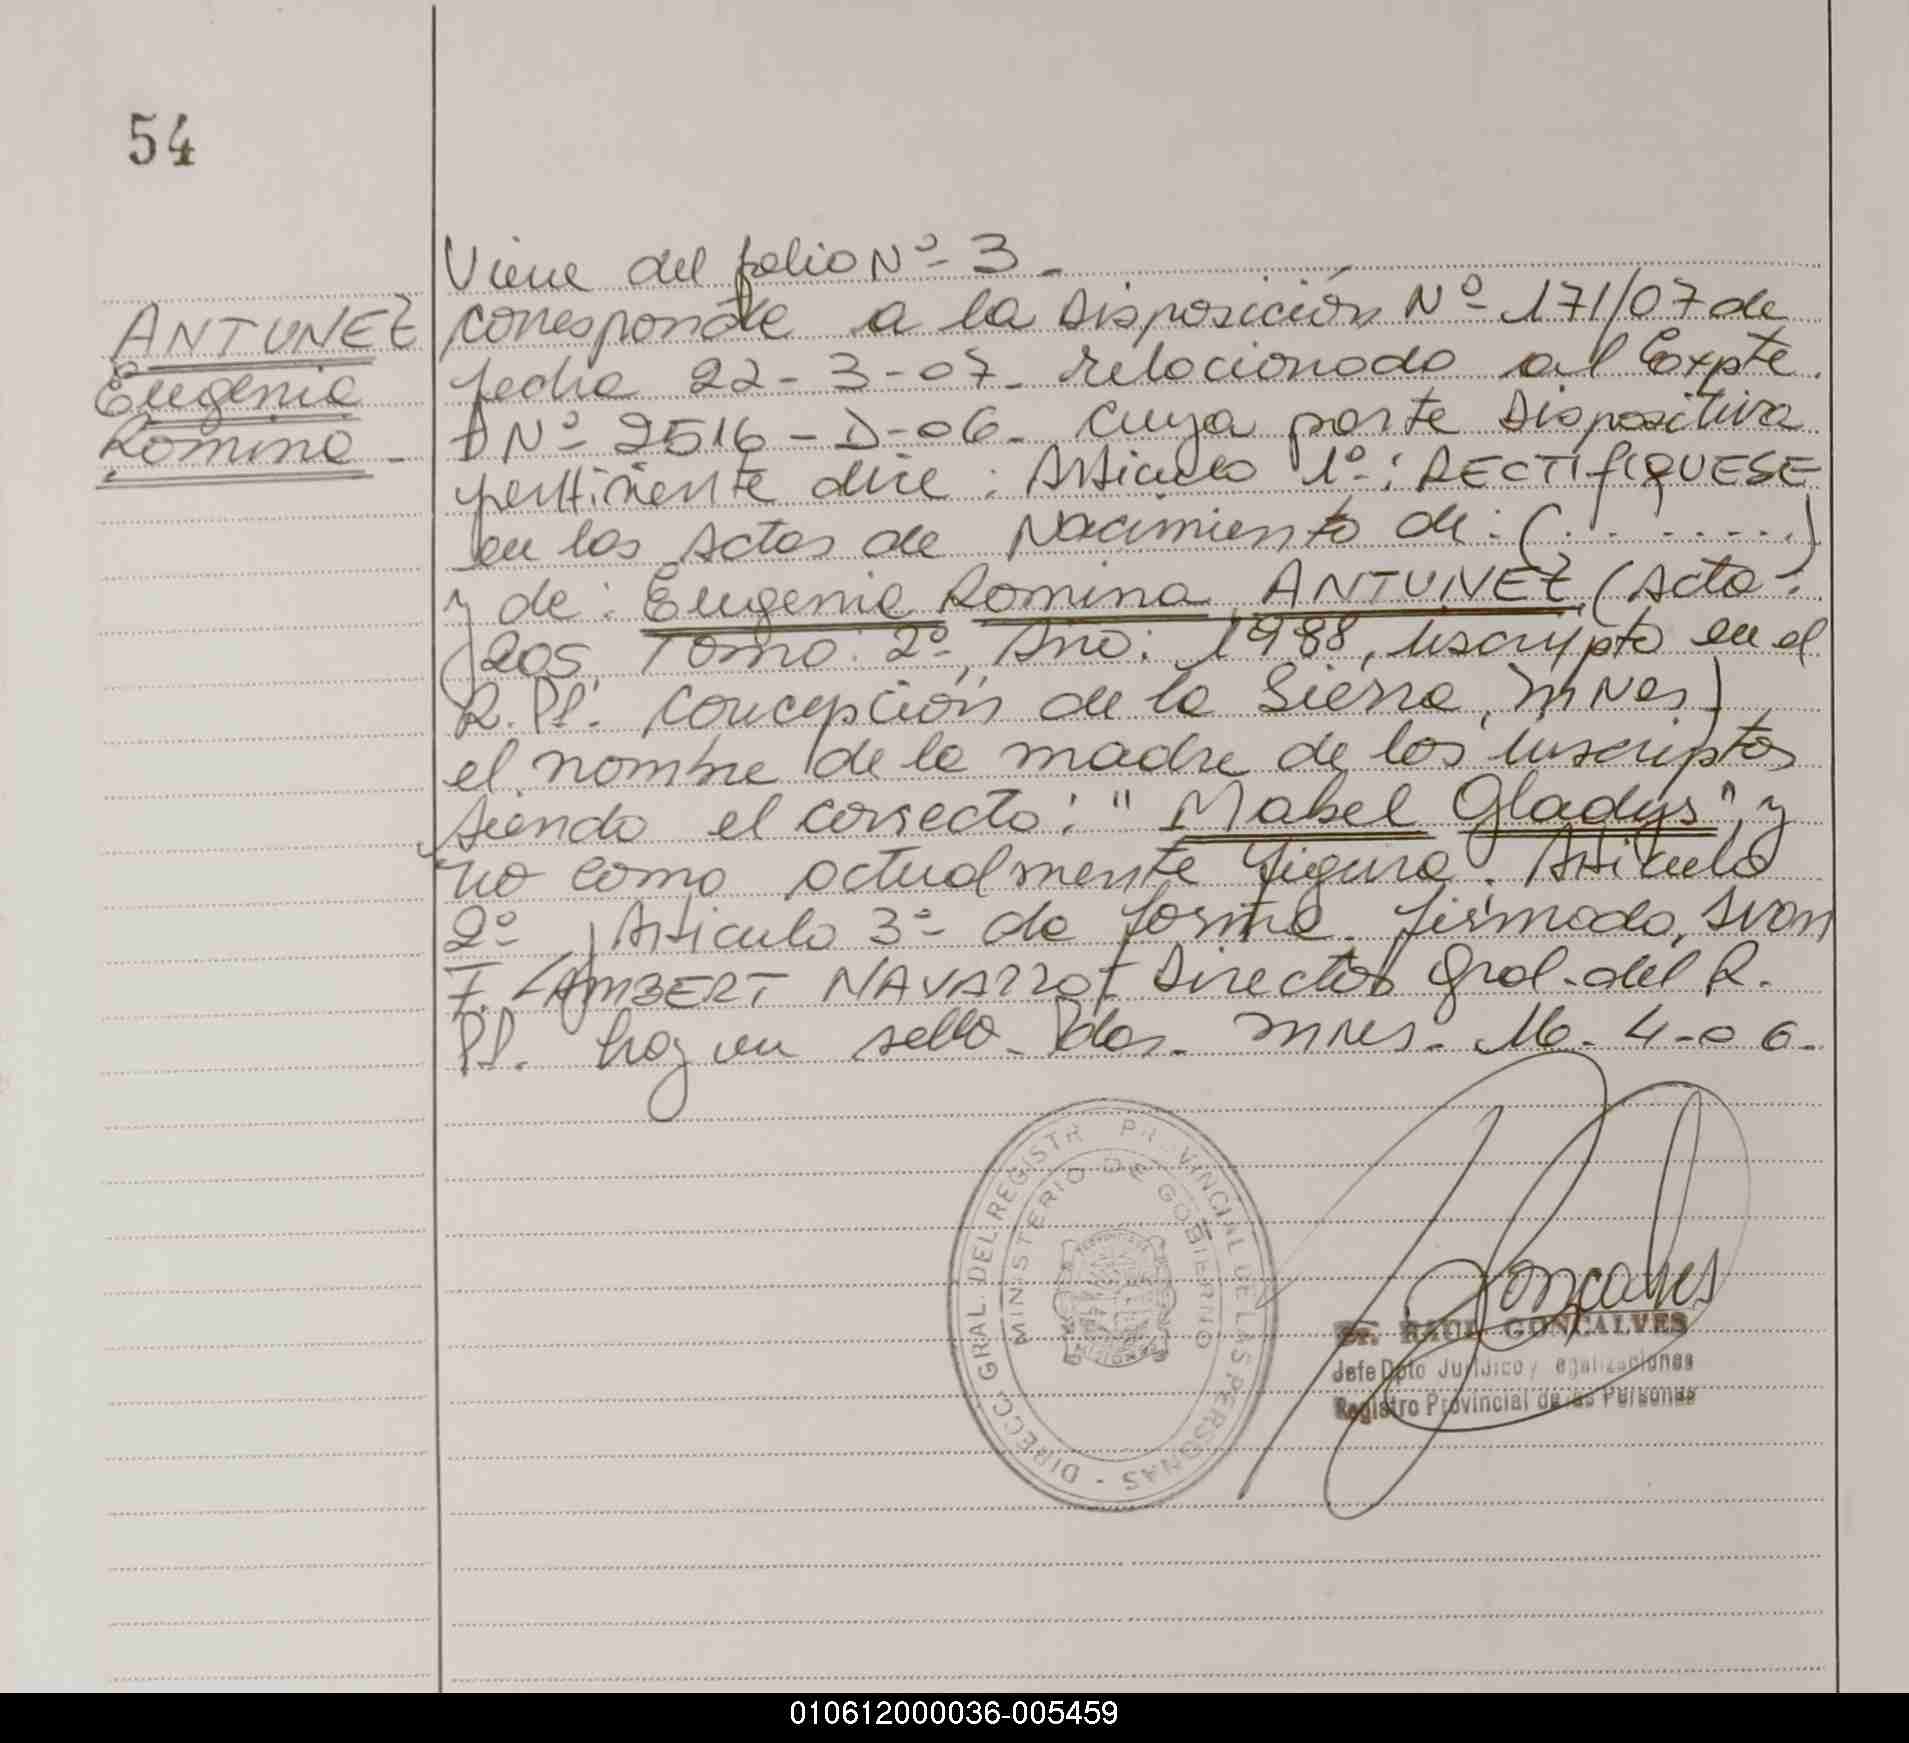 54
Viene del folio Nº 3 -
ANTUNEZ
Eugenia
Romina -
corresponde a la Disposición Nº 171/07 de
fecha 22-3-07- relacionado al Expte.
Nº 2516-D-06- cuya parte Dispositiva
pertinente dice: Articulo 1º: RECTIFIQUESE
en las Actas de Nacimiento de: (.........)
y de: Eugenia Romina ANTUNEZ, (Acta:
205, Tomo: 2º, Año: 1988, inscripto en el
R.PP. Concepción de la Sierra, Mnes)
el nombre de la madre de los inscriptos
siendo el correcto: "Mabel Gladys" y
no como actualmente figura. Articulo
2º, Articulo 3º de forma. firmado, Ivon
F. LAMBERT NAVARRO Director Gral. del R.
PP. hay un sello- Pdas- Mnes- 16-4-06-
DIRECC. GRAL. DEL REGISTR PR VINCIAL DE LAS PERSONAS -
MINISTERIO DE GOBIERNO
Goncalves
Dr. RAUL GONCALVES
Jefe Dpto Juridico y egalizaciones
Registro Provincial de as Personas
010612000036-005459